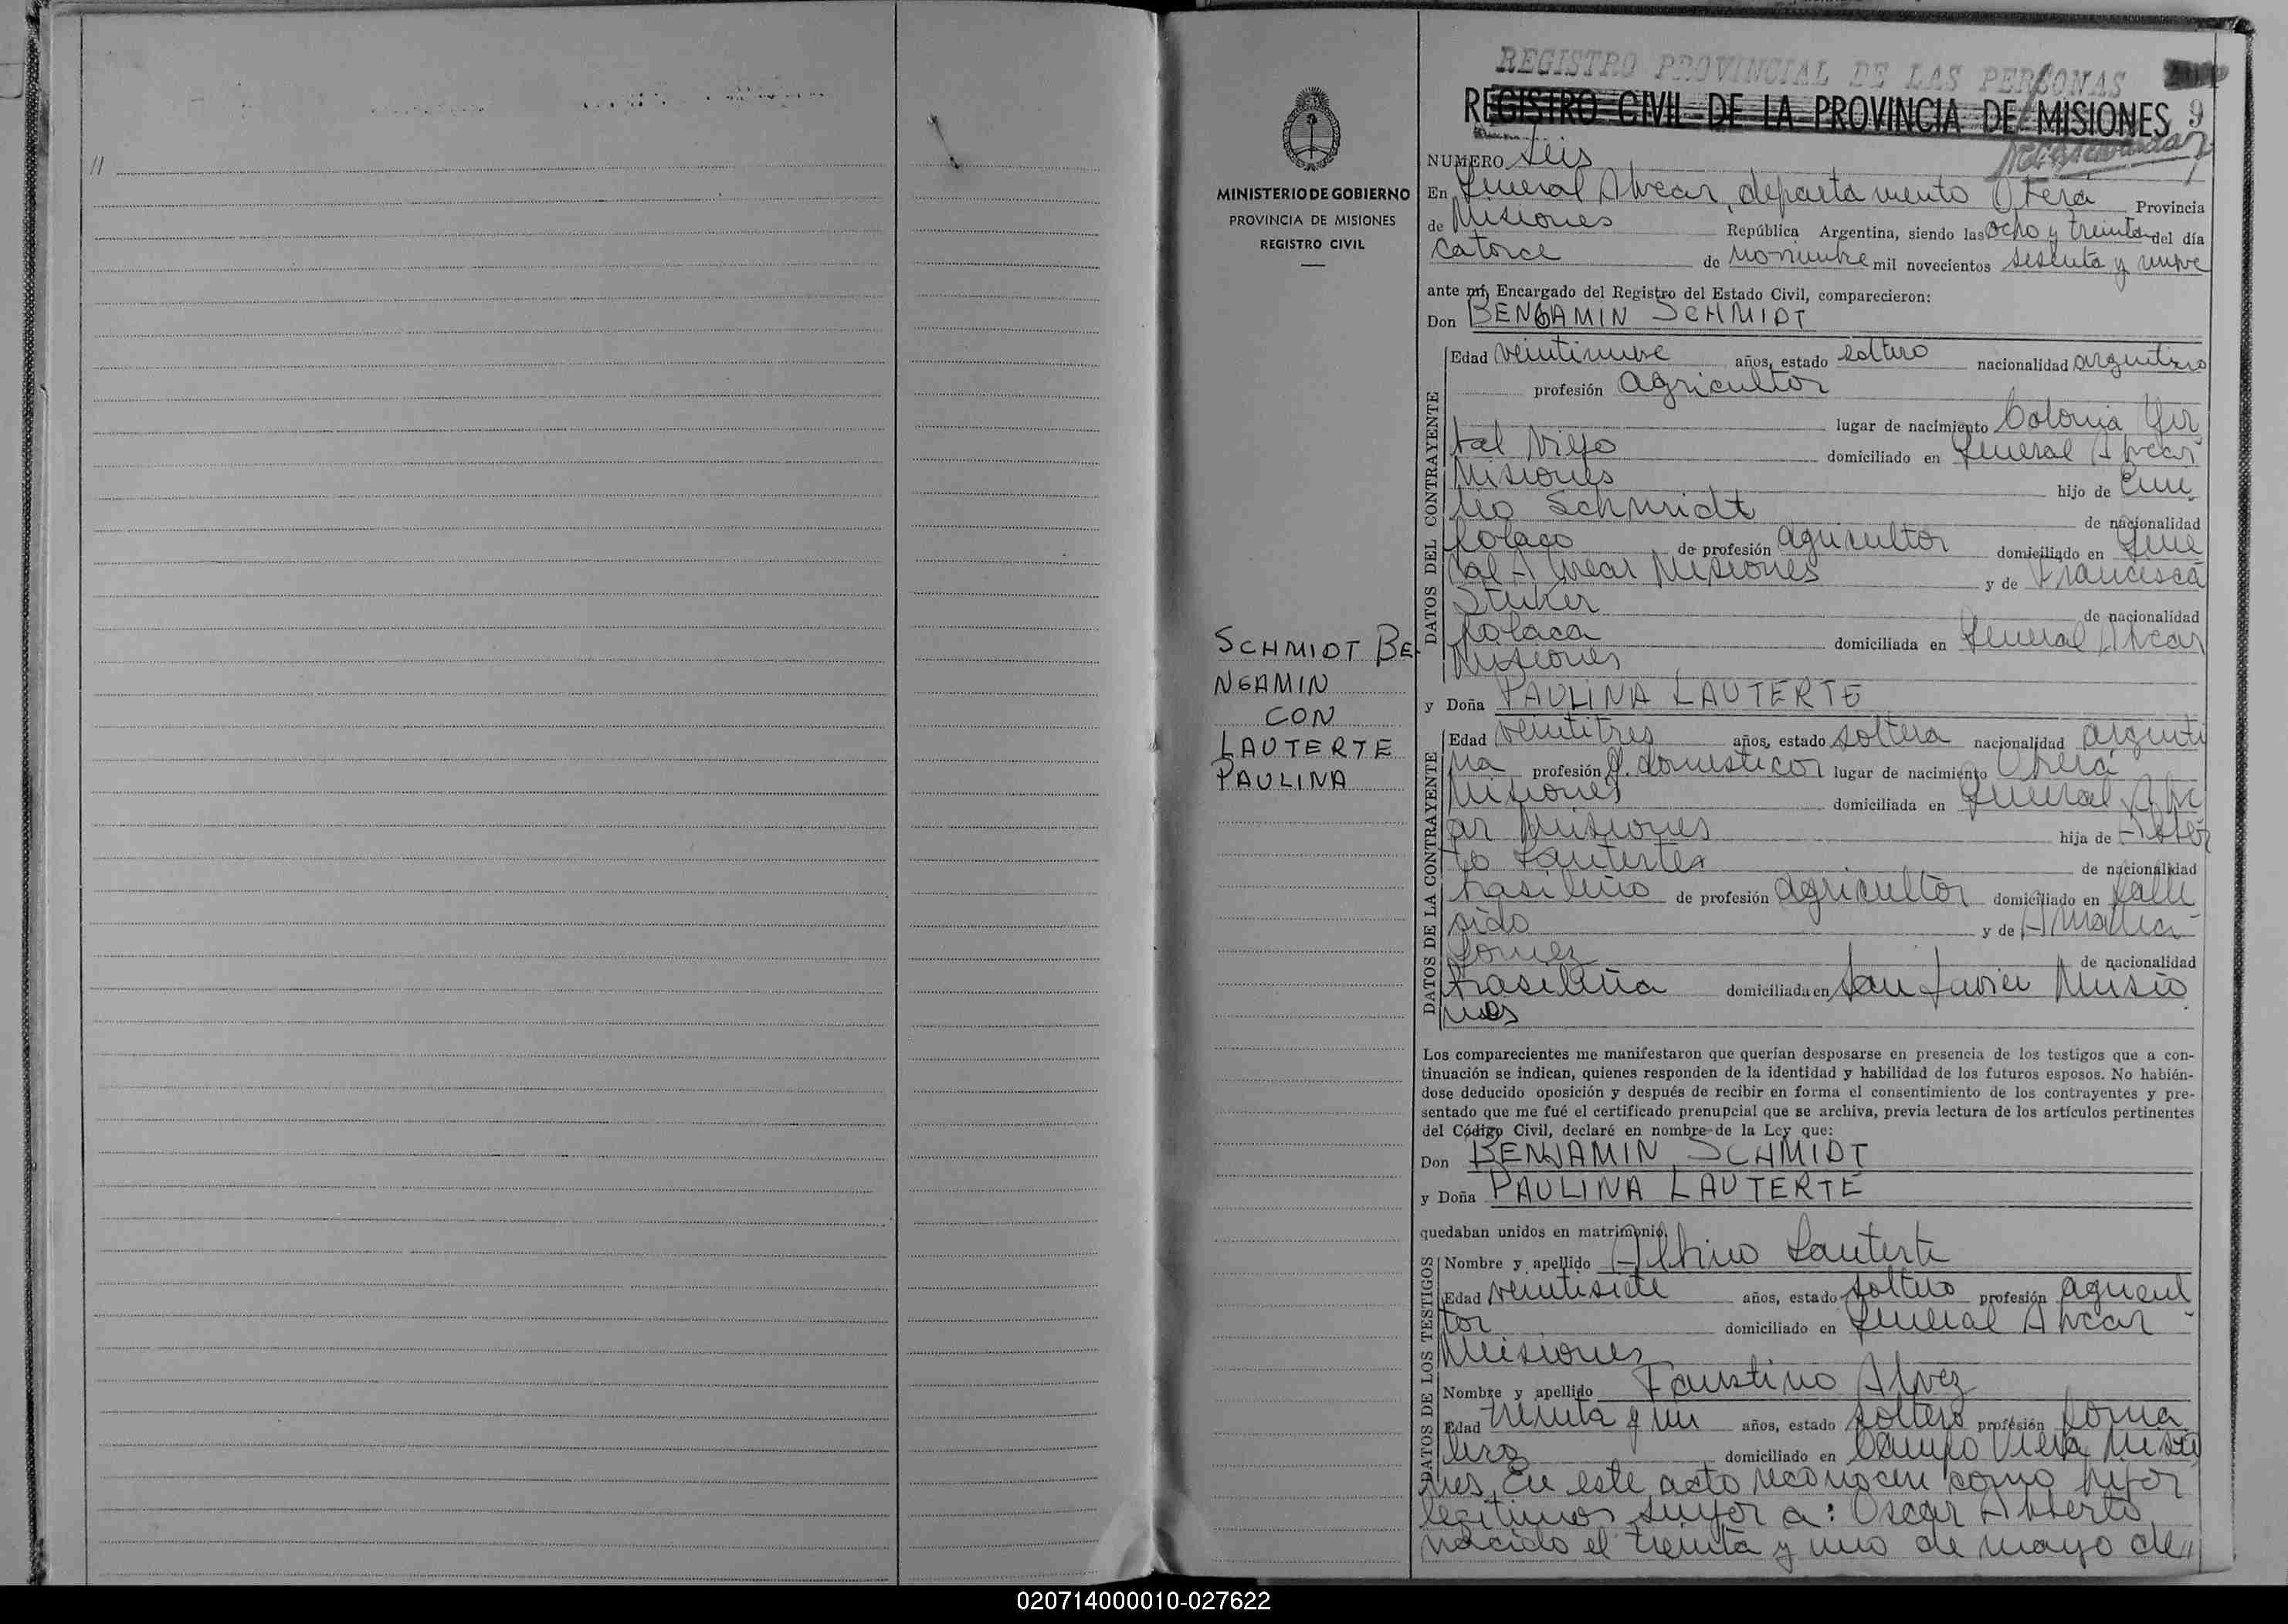 REGISTRO PROVINCIAL DE LAS PERSONAS
REGISTRO CIVIL DE LA PROVINCIA DE MISIONES 9
MINISTERIO DE GOBIERNO
PROVINCIA DE MISIONES
REGISTRO CIVIL
SCHMIDT BE
NGAMIN
CON
LAUTERTE
PAULINA
NUMERO Seis
En General Alvear, departamento Oberá Provincia
de Misiones República Argentina, siendo las ocho y treinta del día
catorce de noviembre mil novecientos sesenta y nueve
ante mí, Encargado del Registro del Estado Civil, comparecieron:
Don BENGAMIN SCHMIDT
DATOS DEL CONTRAYENTE
Edad veintinueve años, estado soltero nacionalidad argentino
profesión agricultor
lugar de nacimiento Colonia Yer
bal Viejo domiciliado en General Alvear
Misiones hijo de Emi
lio Schmidt de nacionalidad
polaco de profesión agricultor domiciliado en Gene
ral Alvear Misiones y de Francisca
Stuker de nacionalidad
polaca domiciliada en General Alvear
Misiones
y Doña PAULINA LAUTERTE
DATOS DE LA CONTRAYENTE
Edad veintitres años, estado soltera nacionalidad argenti
na profesión q. domesticos lugar de nacimiento Oberá
Misiones domiciliada en General Alve
ar Misiones hija de
Lauterte de nacionalidad
brasileño de profesión agricultor domiciliado en falle
sido y de Amalia
Gomez de nacionalidad
brasileña domiciliada en San Javier Misio
nes
Los comparecientes me manifestaron que querían desposarse en presencia de los testigos que a con-
tinuación se indican, quienes responden de la identidad y habilidad de los futuros esposos. No habién-
dose deducido oposición y después de recibir en forma el consentimiento de los contrayentes y pre-
sentado que me fué el certificado prenupcial que se archiva, previa lectura de los artículos pertinentes
del Código Civil, declaré en nombre de la Ley que:
Don BENJAMIN SCHMIDT
y Doña PAULINA LAUTERTE
quedaban unidos en matrimonio.
DATOS DE LOS TESTIGOS
Nombre y apellido Albino Lauterte
Edad veintisiete años, estado soltero profesión agricul
tor domiciliado en General Alvear
Misiones
Nombre y apellido Faustino Alvez
Edad treinta y un años, estado soltero profesión jorna
lero domiciliado en Campo Viera Misio
nes, En este acto reconocen como hijos
legitimos suyos a: Oscar Alberto
nacido el treinta y uno de mayo de //
//
020714000010-027622